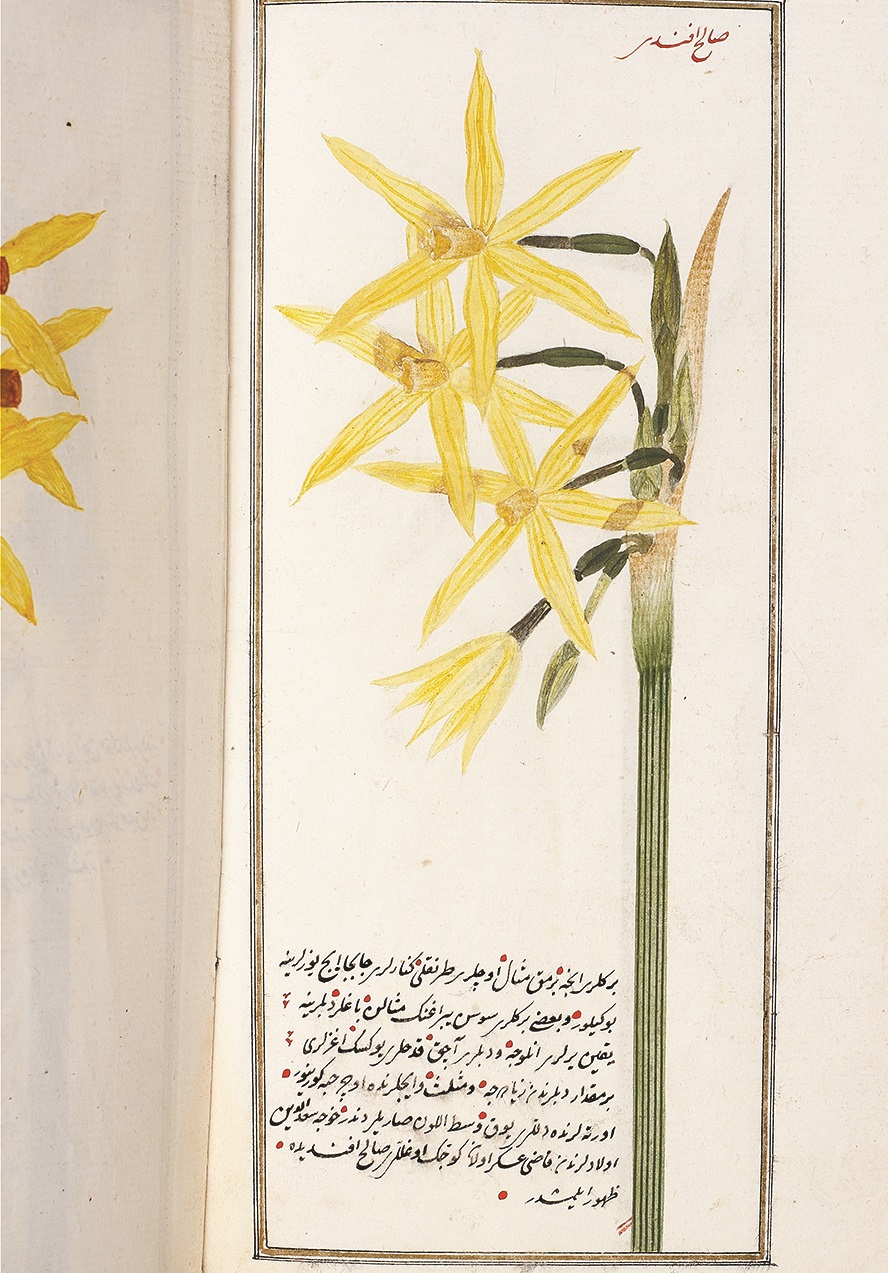 صالح افندی
برکلری اینجه برمق مثال اوجلری طرنقلی کنارلری جابجا ایچ یوزلرینه
بوکیلور و بعضی برکلری سوسن یپراغنک مثالن باغلر دبلرینه
یقین یرلری انلوجه و دبلری آچق قدحلری یوکسک اغزلری
برمقدار دبلرندن زیاده جه و مثلث و ایچلرنده اوچ حبه کورینور
اورته لرنده دللری یوق وسط اللون صاریلردندر خوجه سعدالدین
اولادلرندن قاضی عسکر اولان کوچک اوغللری صالح افندیده
ظهور ایلمشدر